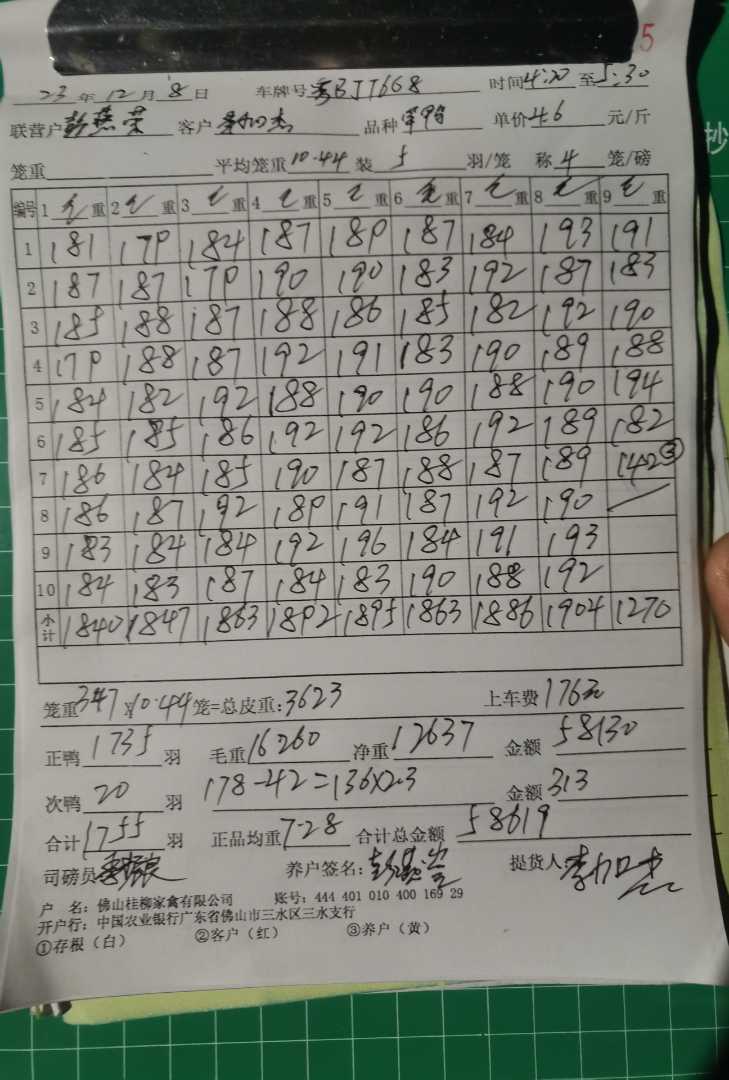 5
23年12月8日 车牌号粤BJT668 时间4:20至5:30
联营户彭燕荣 客户 品种 单价4.6元/斤
笼重 平均笼重10.44装5羽/笼 称4笼/磅
编号 1毛重 2毛重 3毛重 4毛重 5毛重 6毛重 7毛重 8毛重 9毛重
1 181 179 184 187 189 187 184 193 191
2 187 187 179 190 190 183 192 187 183
3 185 188 187 188 186 185 182 192 190
4 179 188 187 192 191 183 190 189 188
5 184 182 192 188 190 190 188 190 194
6 185 185 186 192 192 186 192 189 182
7 186 184 185 190 187 188 187 189 142③
8 186 187 192 189 191 187 192 190
9 183 184 184 192 196 184 191 193
10 184 183 187 184 183 190 188 192
小计 1840 1847 1863 1892 1895 1863 1886 1904 1270
笼重347×10.44笼=总皮重:3623 上车费176元
正鸭1735羽 毛重16260 净重12637 金额58130
次鸭20羽 178-42=136×2.3 金额313
合计1755羽 正品均重7.28 合计总金额58619
司磅员 养户签名: 提货人
户 名:佛山桂柳家禽有限公司 账号:444 401 010 400 169 29
开户行:中国农业银行广东省佛山市三水区三水支行
①存根(白) ②客户(红) ③养户(黄)
抄